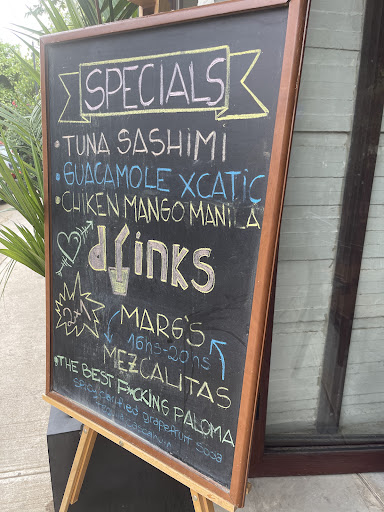 SPECIALS
• TUNA SASHIMI
• GUACAMOLE XCATIC
• CHIKEN MANGO MANILA
drinks
2x1
MARG'S
16hs-20hs
MEZCALITAS
• THE BEST F*CKING PALOMA
spicy clarified grapefruit soda